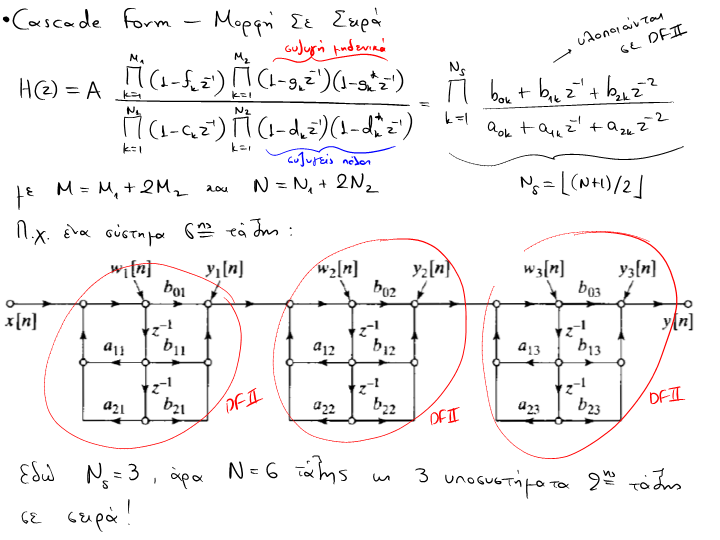 • Cascade Form – Μορφή Σε Σειρά
υλοποιούνται
σε DF II
συζυγή μηδενικά
H(z) = A \frac{\prod_{k=1}^{M_1} (1-f_k z^{-1}) \prod_{k=1}^{M_2} (1-g_k z^{-1})(1-g_k^* z^{-1})}{\prod_{k=1}^{N_1} (1-c_k z^{-1}) \prod_{k=1}^{N_2} (1-d_k z^{-1})(1-d_k^* z^{-1})} = \prod_{k=1}^{N_s} \frac{b_{0k} + b_{1k} z^{-1} + b_{2k} z^{-2}}{a_{0k} + a_{1k} z^{-1} + a_{2k} z^{-2}}
συζυγείς πόλοι
με M = M_1 + 2M_2 και N = N_1 + 2N_2
N_s = ⌊(N+1)/2⌋
Π.χ. ένα σύστημα 6ης τάξης:
w_1[n] y_1[n] w_2[n] y_2[n] w_3[n] y_3[n]
b_{01} b_{02} b_{03}
x[n] y[n]
z^{-1} z^{-1} z^{-1}
a_{11} b_{11} a_{12} b_{12} a_{13} b_{13}
z^{-1} z^{-1} z^{-1}
a_{21} b_{21} a_{22} b_{22} a_{23} b_{23}
DF II DF II DF II
Εδώ N_s = 3, άρα N = 6 τάξης κι 3 υποσυστήματα 2ης τάξης
σε σειρά!